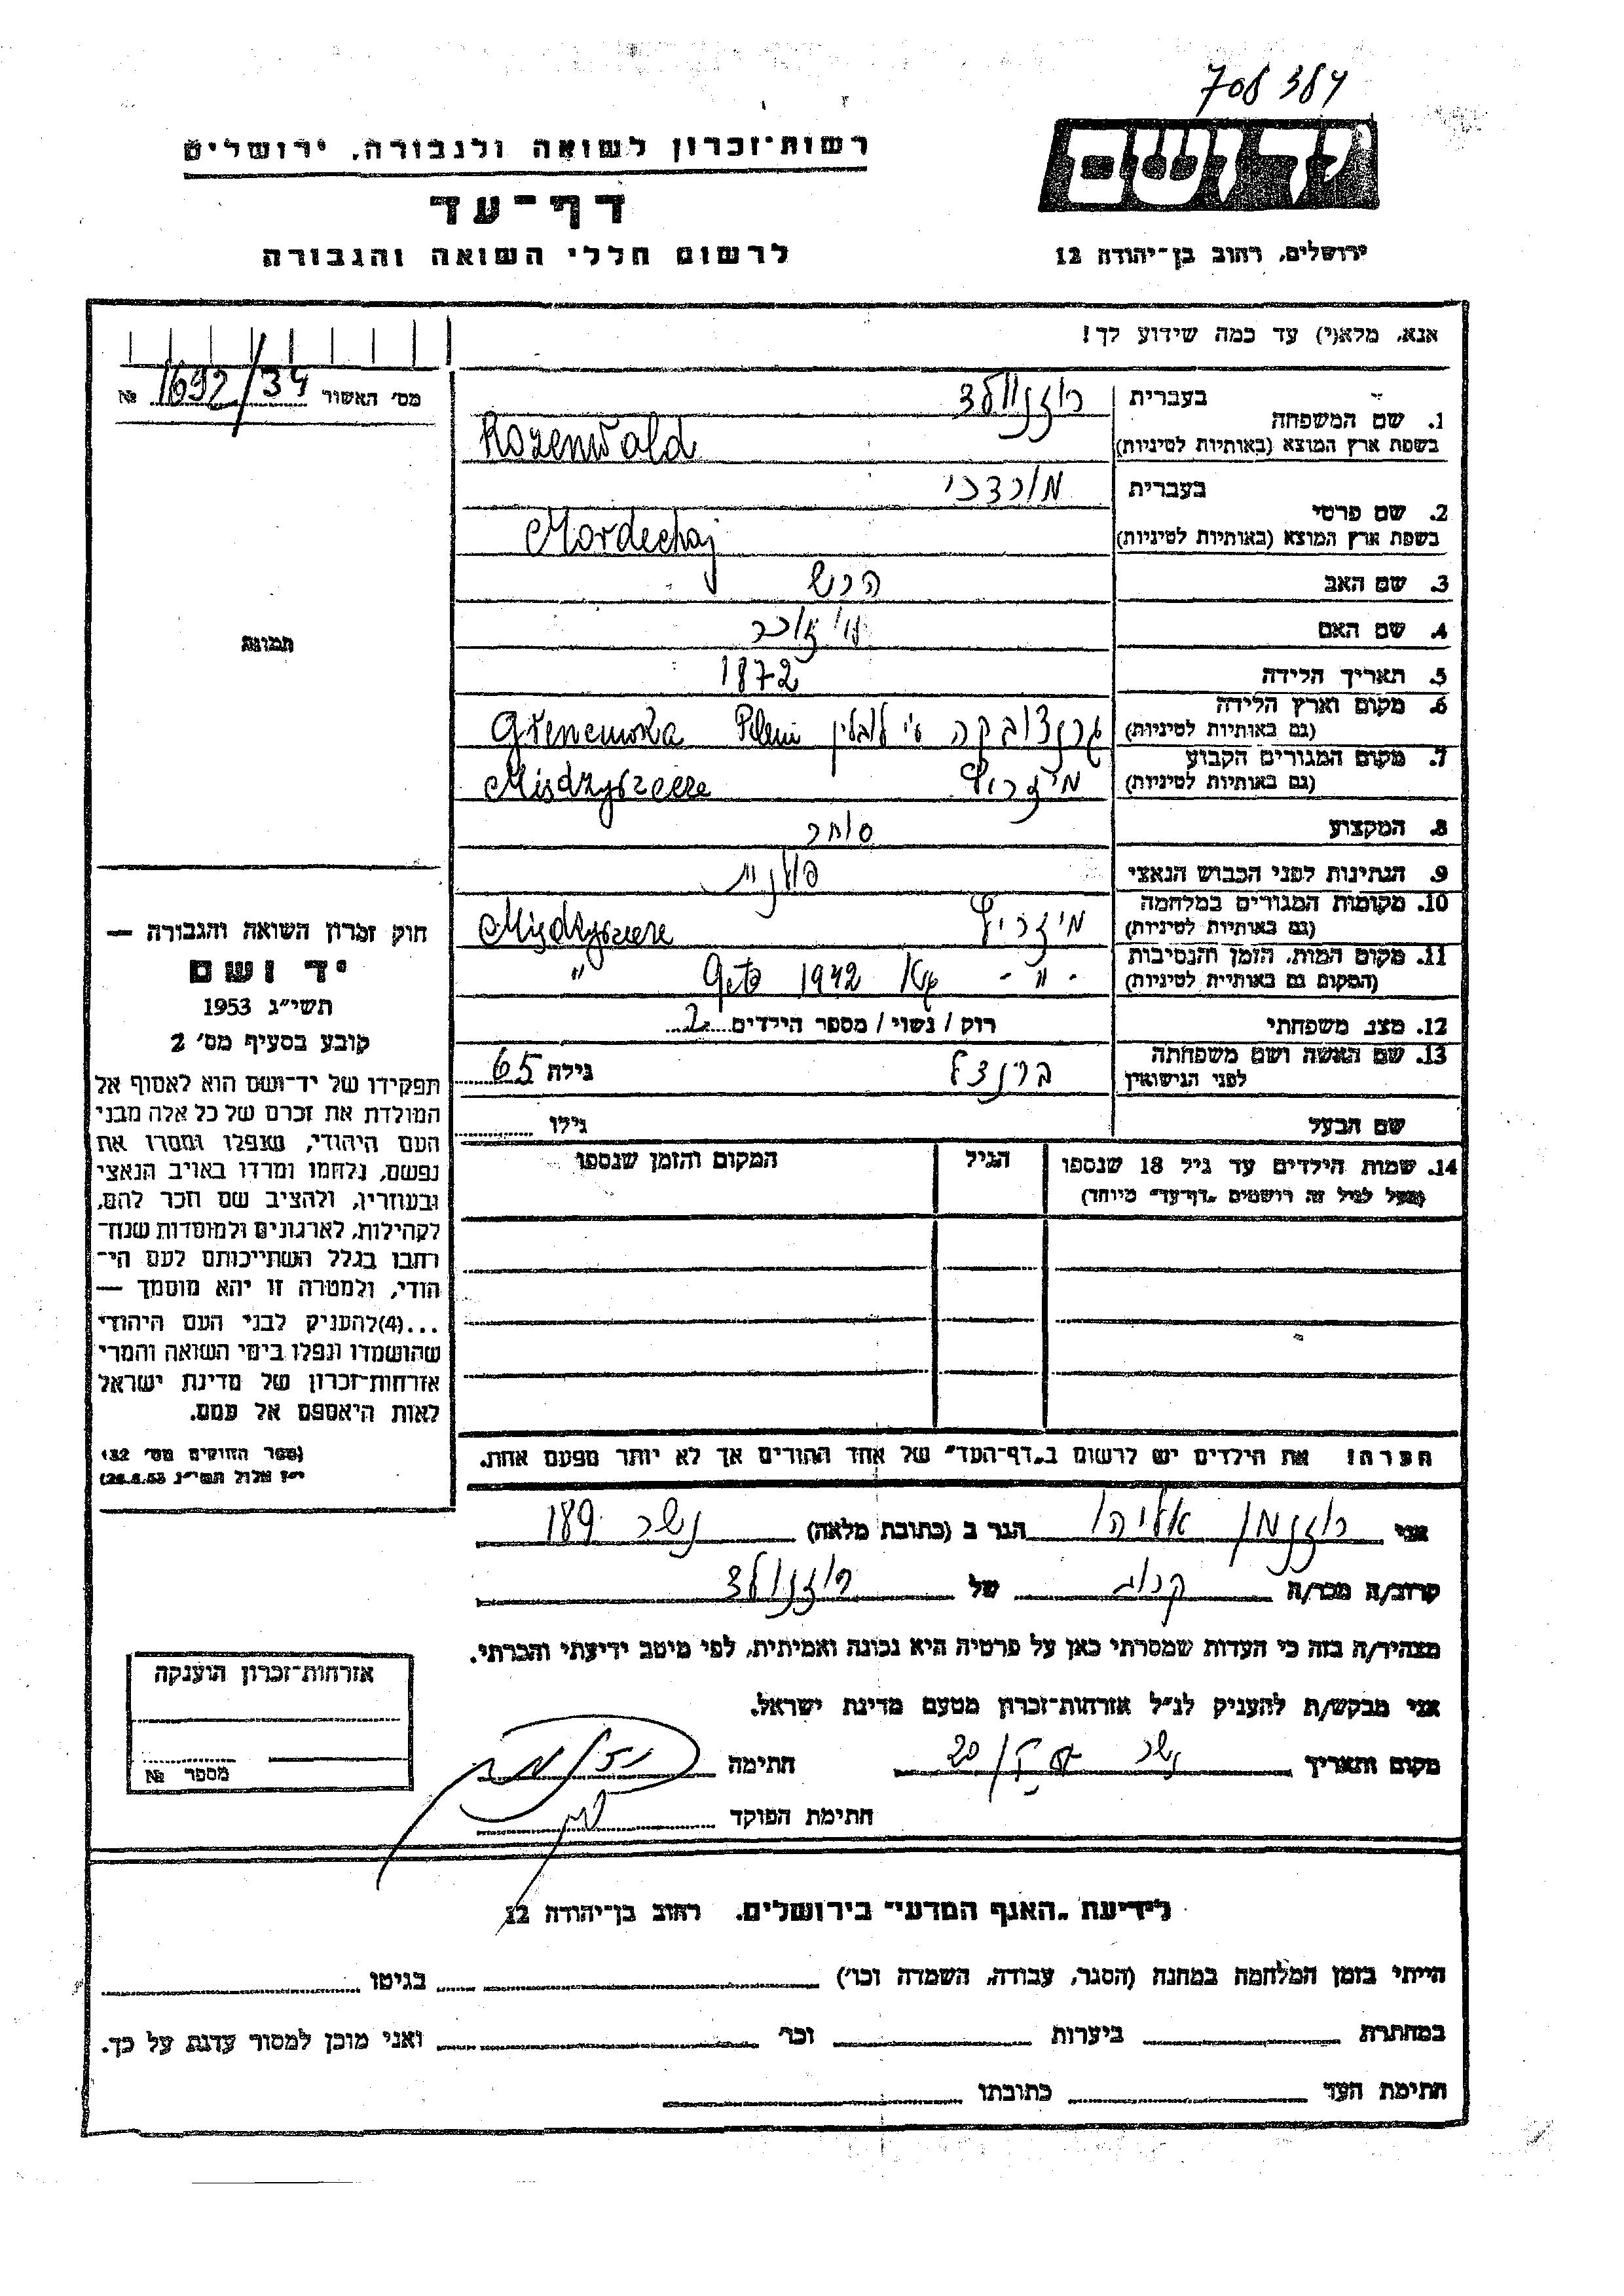 708 384
יד ושם
רשות־זכרון לשואה ולגבורה, ירושלים
דף־עד
לרשום חללי השואה והגבורה
ירושלים, רחוב בן־יהודה 12
אנא, מלא(י) עד כמה שידוע לך!
מס׳ האשור 1692/34 №
1. שם המשפחה בעברית רוזנוולד
בשפת ארץ המוצא (באותיות לטיניות) Rozenwald
2. שם פרטי בעברית מורדכי
בשפת ארץ המוצא (באותיות לטיניות) Mordechaj
3. שם האב הרש
4. שם האם
5. תאריך הלידה 1872
6. מקום וארץ הלידה
(גם באותיות לטיניות) לובלין
7. מקום המגורים הקבוע
(גם באותיות לטיניות) מיזריץ
8. המקצוע סוחר
9. הנתינות לפני הכבוש הנאצי פולנית
10. מקומות המגורים במלחמה
(גם באותיות לטיניות) מיזריץ
11. מקום המות, הזמן והנסיבות
(המקום גם באותיית לטיניות) - " - 1942 "
12. מצב משפחתי רוק / נשוי / מספר הילדים 2
13. שם האשה ושם משפחתה
לפני הנישואין גילה 65
שם הבעל גילו
14. שמות הילדים עד גיל 18 שנספו הגיל המקום והזמן שנספו
(מעל לגיל זה רושמים „דף־עד״ מיוחד)
הערה! את הילדים יש לרשום ב„דף־העד״ של אחד ההורים אך לא יותר מפעם אחת.
תמונה
חוק זכרון השואה והגבורה —
יד ושם
תשי״ג 1953
קובע בסעיף מס׳ 2
תפקידו של יד־ושם הוא לאסוף אל
המולדת את זכרם של כל אלה מבני
העם היהודי, שנפלו ומסרו את
נפשם, נלחמו ומרדו באויב הנאצי
ובעוזריו, ולהציב שם וזכר להם,
לקהילות, לארגונים ולמוסדות שנח־
רחבו בגלל השתייכותם לעם הי־
הודי, ולמטרה זו יהא מוסמך —
...(4)להעניק לבני העם היהודי
שהושמדו ונפלו בימי השואה והמרי
אזרחות־זכרון של מדינת ישראל
לאות היאספם אל עמם.
(ספר החוקים מס׳ 132
י״ז אלול תשי״ג 28.8.53)
אני רוזנמן אליהו הגר ב (כתובת מלאה) נשר 189
קרוב/ה מכר/ה קרוב של רוזנוולד
מצהיר/ה בזה כי העדות שמסרתי כאן על פרטיה היא נכונה ואמיתית, לפי מיטב ידיעתי והכרתי.
אני מבקש/ת להעניק לנ״ל אזרחות־זכרון מטעם מדינת ישראל.
מקום ותאריך נשר חתימה
חתימת הפוקד
אזרחות־זכרון הוענקה
מספר №
לידיעת „האגף המדעי״ בירושלים, רחוב בן־יהודה 12
הייתי בזמן המלחמה במחנה (הסגר, עבודה, השמדה וכו׳) בגיטו
במחתרת ביערות וכו׳ ואני מוכן למסור עדות על כך.
חתימת העד כתובתו